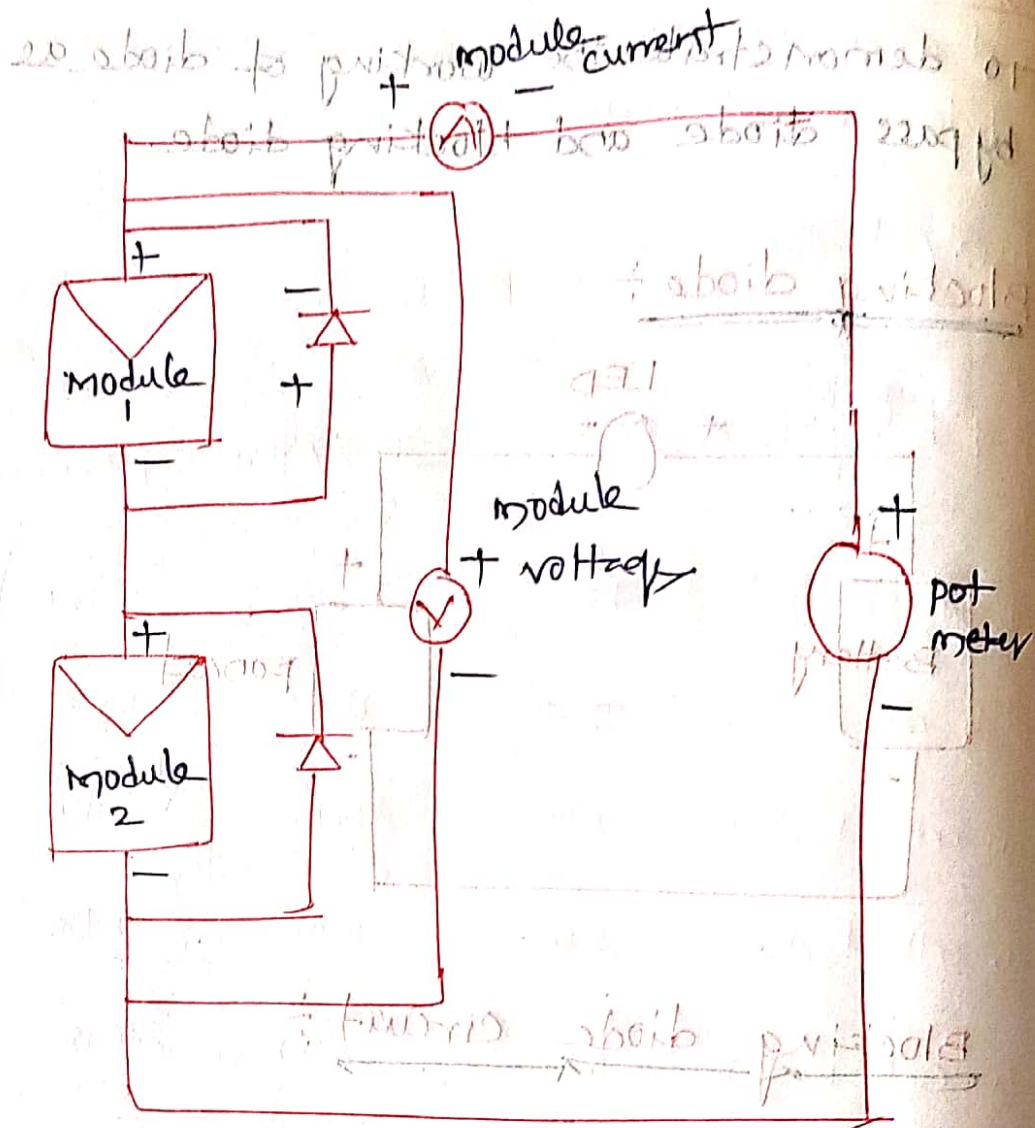 module current
+ -
A
+
-
Module
1
+
-
module
+ voltage
V
-
+
pot
meter
-
+
Module
2
-